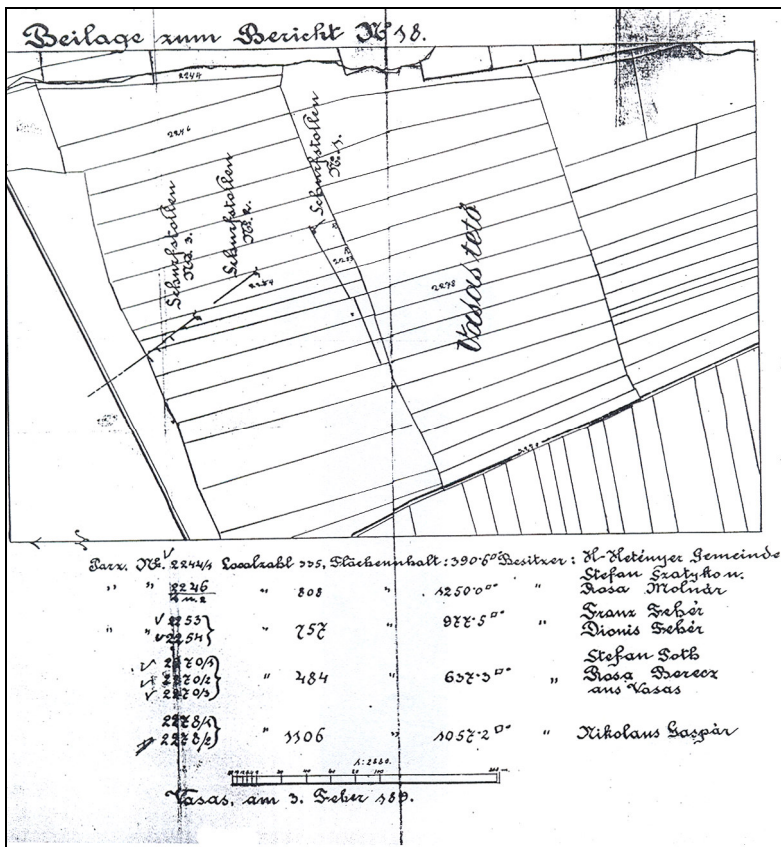 Beilage zum Bericht No 18.
2244
2246
Schurfstollen
No. 1.
Schurfstollen
No. 2.
Schurfstollen
No. 3.
2254
2253
2278
Vasas tető
Parz. No. 2244/1 Localzahl 335, Flächeninhalt: 390·6□° Besitzer: H-Hetényer Gemeinde
" " 2246 " 808 " 1250·0□° " Stefan Szatyko u.
Rosa Molnár
" " 2253 } " 757 " 977·5□° " Franz Fehér
2254 } Dionis Fehér
2270/1 } Stefan Toth
2270/2 } " 484 " 637·3□° " Rosa Berecz
2270/3 } aus Vasas
2278/1 } " 1106 " 1057·2□° " Nikolaus Gaspár
2278/2 }
1:2880.
Vasas, am 3. Feber 189.